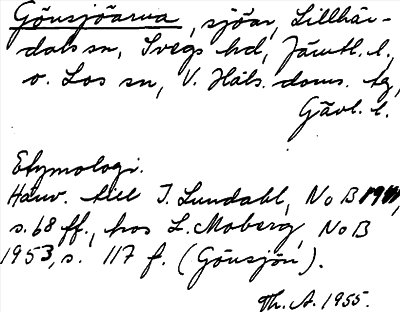 Gönsjöarna, sjöar, Lillhär-
dals sn, Svegs hd, Jämtl. l.,
o. Los sn, V. Häls. doms. tg,
Gävl. l.
Etymologi.
Hänv. till I. Lundahl, NoB
s. 68 ff., hos L. Moberg, NoB
1953, s. 117 f. (Gönsjön).
Th. A. 1955.